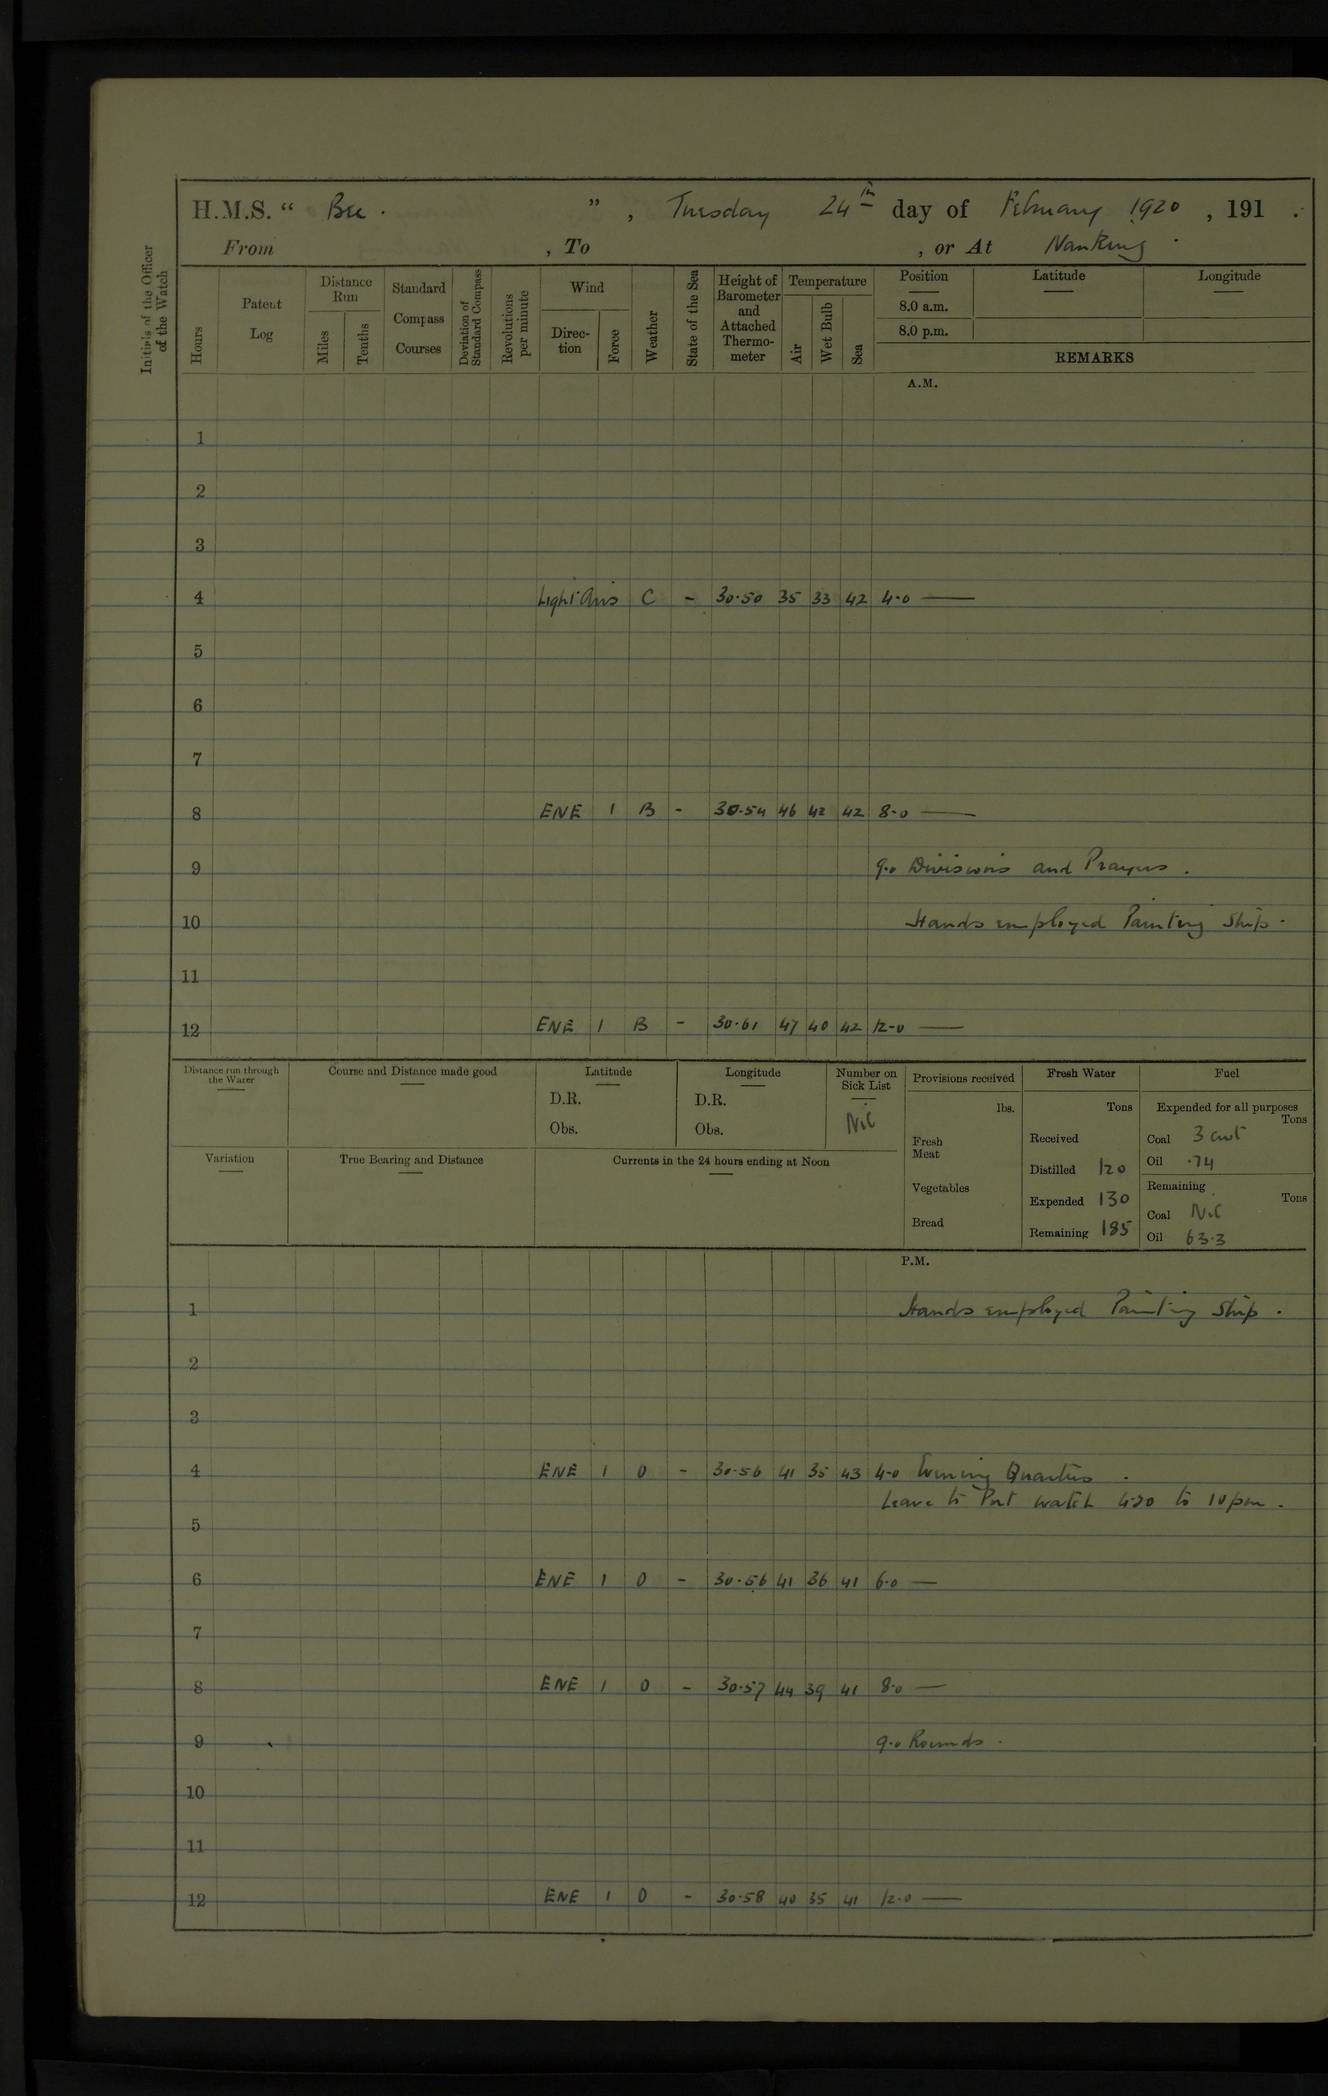 H.M.S. “ Bee. ” , Tuesday 24th day of February 1920 , 191 .
From , To , or At Nanking.
Initials of the Officer of the Watch
Hours
Patent Log
Distance Run
Miles
Tenths
Standard Compass Courses
Deviation of Standard Compass
Revolutions per minute
Wind
Direc-tion
Force
Weather
State of the Sea
Height of Barometer and Attached Thermo-meter
Temperature
Air
Wet Bulb
Sea
Position Latitude Longitude
8.0 a.m.
8.0 p.m.
REMARKS
A.M.
1
2
3
4 Light Airs C - 30.50 35 33 42 4.0 —
5
6
7
8 ENE 1 B - 30.54 46 42 42 8.0 —
9 9.0 Divisions and Prayers.
10 Hands employed Painting Ship.
11
12 ENE 1 B - 30.61 47 40 42 12.0 —
Distance run through the Water
Course and Distance made good
Latitude
D.R.
Obs.
Longitude
D.R.
Obs.
Number on Sick List
Nil
Variation
True Bearing and Distance
Currents in the 24 hours ending at Noon
Provisions received
lbs.
Fresh Meat
Vegetables
Bread
Fresh Water
Tons
Received
Distilled 120
Expended 130
Remaining 185
Fuel
Expended for all purposes
Tons
Coal 3 cwt
Oil .74
Remaining
Tons
Coal Nil
Oil 63.3
P.M.
1 Hands employed Painting Ship.
2
3
4 ENE 1 O - 30.56 41 35 43 4.0 Evening Quarters.
Leave to Port watch 4.30 to 10 pm.
5
6 ENE 1 O - 30.56 41 36 41 6.0 —
7
8 ENE 1 O - 30.57 44 39 41 8.0 —
9 9.0 Rounds.
10
11
12 ENE 1 O - 30.58 40 35 41 12.0 —